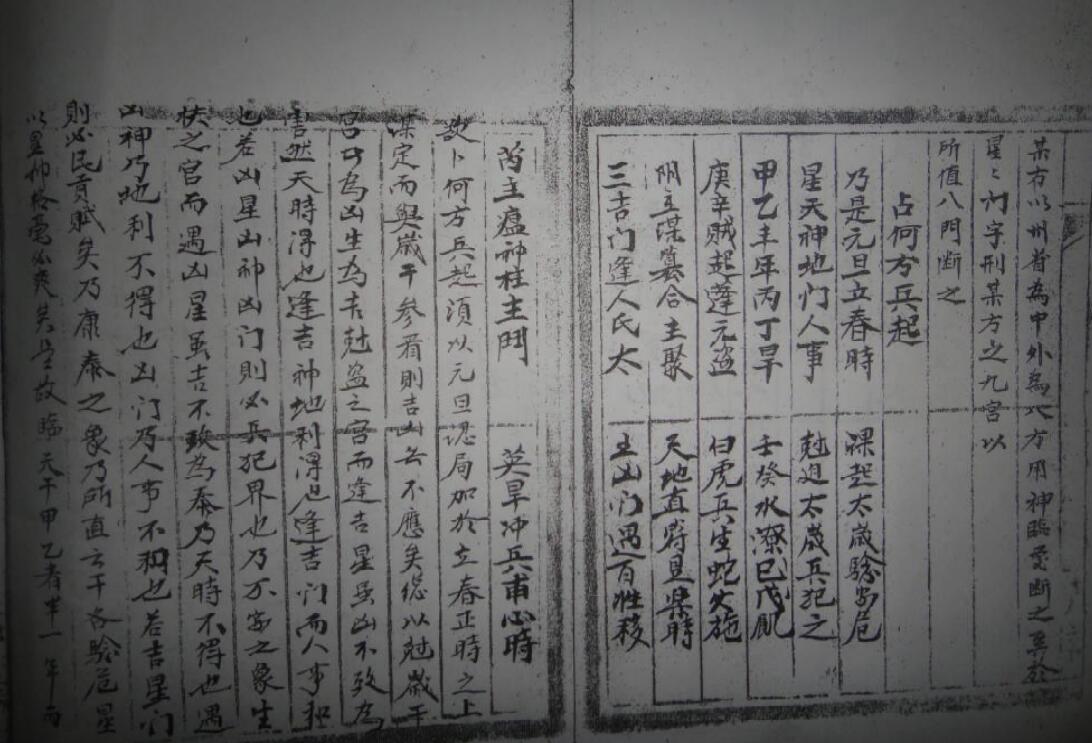 某右以州首為中外為八方用神臨受断之至於
星之门字刑某方之九宫以
所值八門断之
占何方兵起
乃是元旦立春時 課起太歲驗安危
星天神地门人事 尅迫太歲兵犯之
甲乙主年丙丁旱 壬癸水潦巳戊飢
庚辛賊起蓬元盗 白虎兵生蛇火施
阴主謀篡合主聚 天地直符見樂時
三吉门逢人民太 五凶门遇百姓移
芮主瘟神柱主鬥 英旱冲兵甫心時
欲卜何方兵起須以元旦認局加於立春正時之上
課定而與歲干參看則吉凶无不應矣总以尅歲干
宫者為凶生為吉尅盗之宫而逢吉星虽凶不致為
害然天時得也逢吉神地利得也逢吉门而人事和
也若凶星凶神凶门則必兵犯界也乃不安之象生
扶之宫而遇凶星虽吉不致為泰乃天時不得也遇
凶神乃地利不得也凶门乃人事不和也若吉星门
則必民貢賦矣乃康泰之象乃所直云干各驗危星
以星
故臨天干甲乙者半一年而